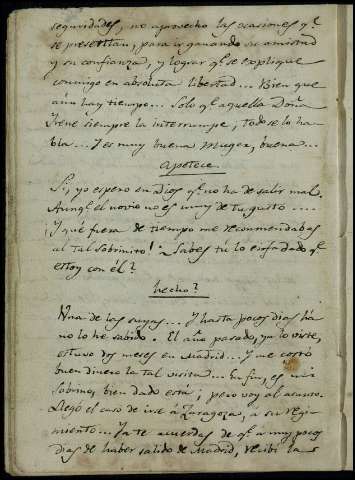 seguridades, no aprovecho las ocasiones q.e
se presentan, para ir ganando su amistad
y su confianza, y lograr q.e se explique
conmigo en absoluta libertad... Bien que
aun hay tiempo... Solo q.e aquella Doña
Irene siempre la interrumpe, todo se lo ha-
bla... Y es muy buena Muger, buena...
apetece.
Si, yo espero en Dios q.e no ha de salir mal.
Aunq.e el novio no es muy de tu gusto....
¡Y qué fuera de tiempo me recomendabas
al tal Sobrinito! ¿Sabes tú lo enfadado q.e
estoy con él?
hecho?
Una de las suyas... Y hasta pocos dias há
no lo he sabido. El año pasado, ya lo viste,
estuvo dos meses en Madrid... Y me costó
buen dinero la tal visita... En fin, es mi
Sobrino, bien dado está; pero voy al asunto.
Llegó el caso de irse á Zaragoza, á su regi-
miento... Ya te acuerdas de q.e a muy pocos
dias de haber salido de Madrid, recibí la